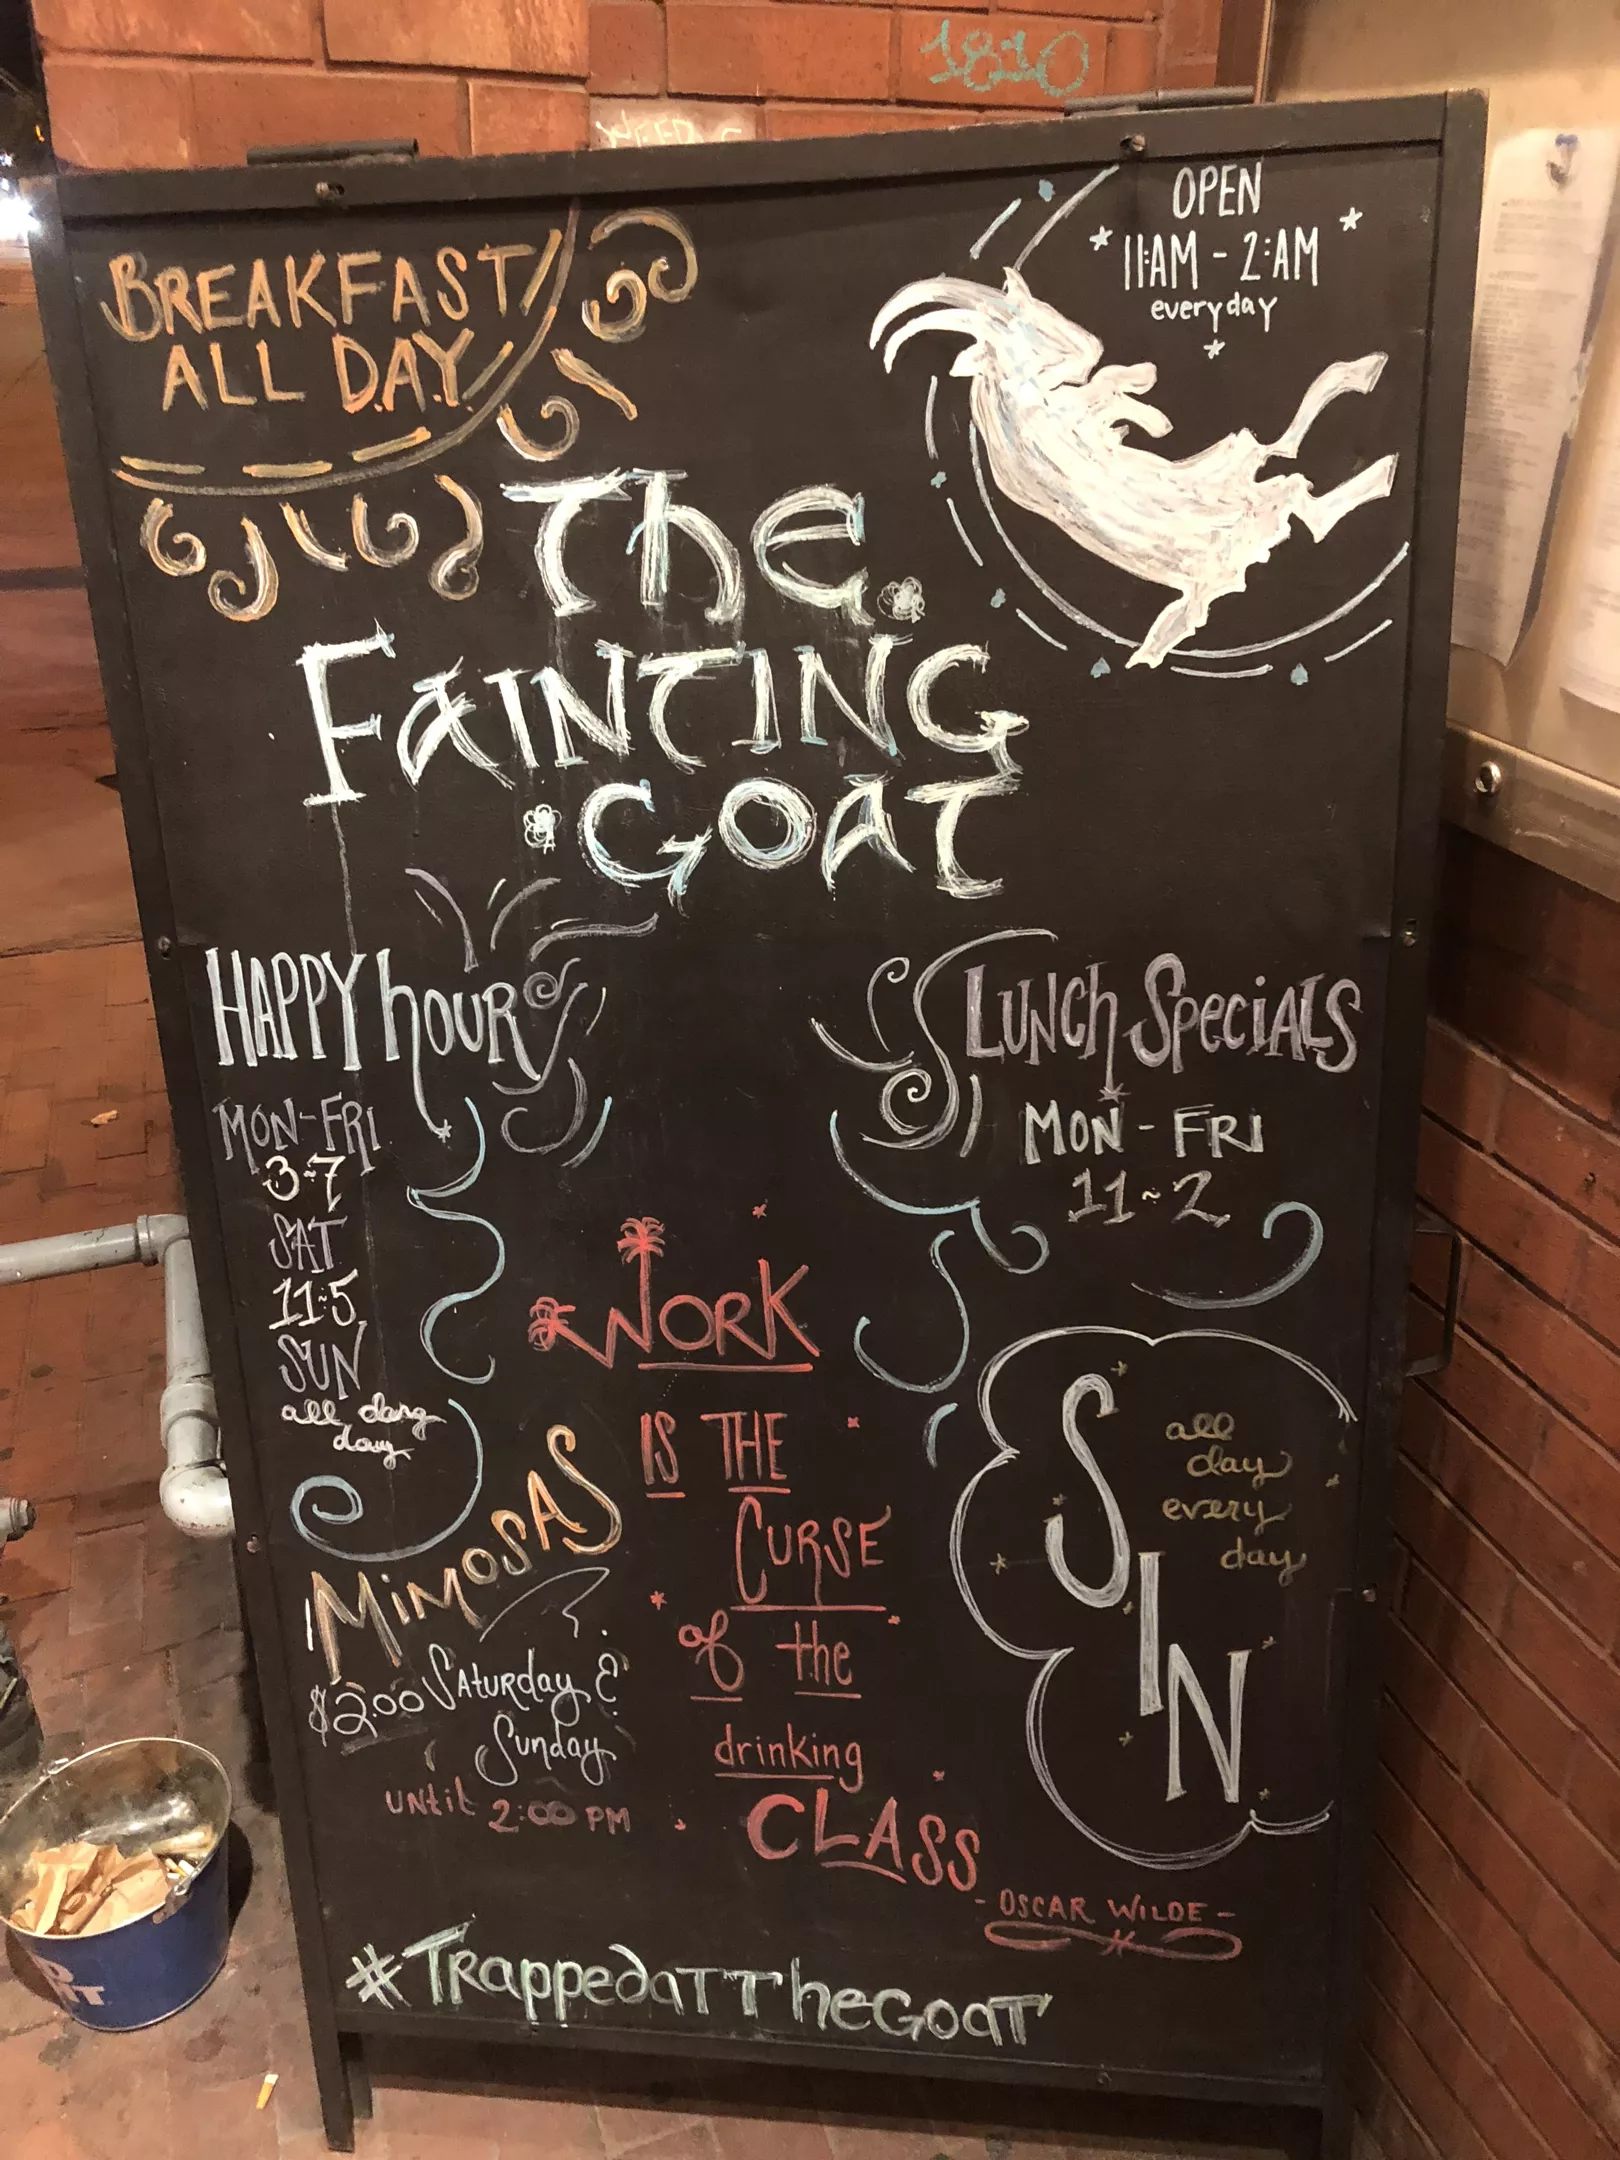 1810
BREAKFAST
ALL DAY
OPEN
11AM - 2:AM
everyday
The
FAINTING
GOAT
HAPPY hOUR
MON-FRI
3-7
SAT
11-5
SUN
all dang
day
Lunch Specials
MON - FRI
11-2
WORK
IS THE
CURSE
of the
drinking
CLASS
- OSCAR WILDE -
MiMOSAS
$2.00 SATURday &
Sunday
UNtil 2:00 PM
SIN
all
day
every
day
#TRappedaTTheGoaT